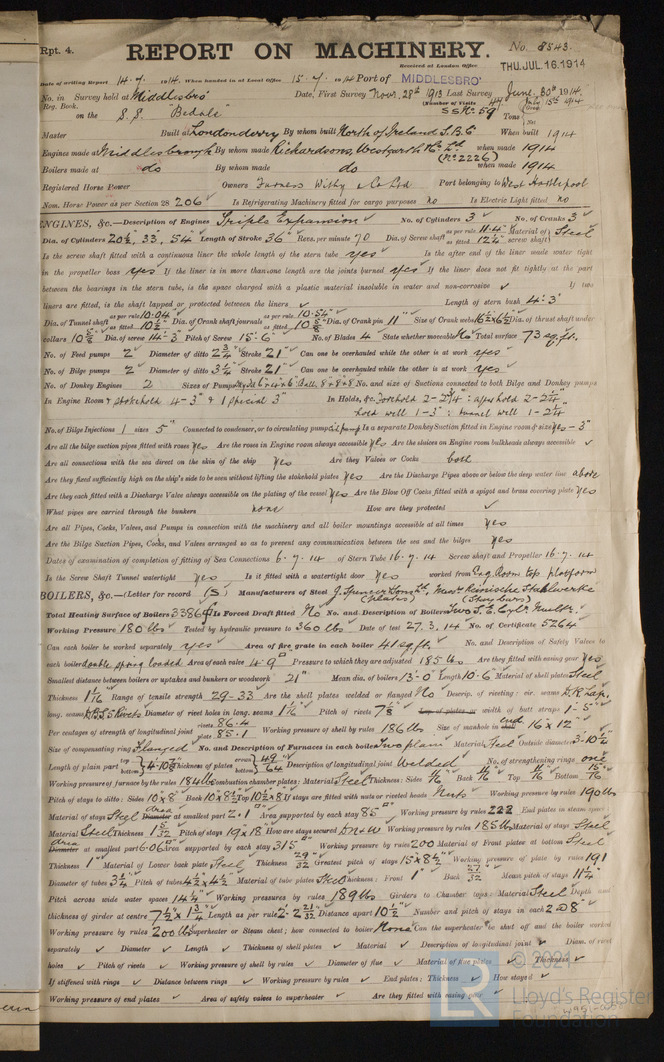 Rpt. 4.
REPORT ON MACHINERY.
No. 8543.
Received at London Office
THU. JUL. 16. 1914
Date of writing Report 14.7.1914. When handed in at Local Office 15.7.1914 Port of MIDDLESBRO'
No. in Survey held at Middlesbro' Date, First Survey Nov. 28th 1913 Last Survey June. 30th 1914.
Reg. Book. (Number of Visits
on the S.S. "Bedale" SS No. 59 Tons
Master Built at Londonderry By whom built North of Ireland S.B.Co When built 1914
Engines made at Middlesbrough By whom made Richardsons, Westgarth & Co. Ld. (No. 2226) when made 1914
Boilers made at do By whom made do when made 1914
Registered Horse Power Owners Furness Withy & Co Ltd Port belonging to West Hartlepool
Nom. Horse Power as per Section 28 206 Is Refrigerating Machinery fitted for cargo purposes no Is Electric Light fitted no
ENGINES, &c.—Description of Engines Triple Expansion No. of Cylinders 3 No. of Cranks 3
Dia. of Cylinders 20½, 33, 54 Length of Stroke 36" Revs. per minute 70 Dia. of Screw shaft as per rule 11.4 as fitted 12¼ Material of screw shaft Steel
Is the screw shaft fitted with a continuous liner the whole length of the stern tube yes Is the after end of the liner made water tight
in the propeller boss yes If the liner is in more than one length are the joints burned yes If the liner does not fit tightly at the part
between the bearings in the stern tube, is the space charged with a plastic material insoluble in water and non-corrosive ✓ If two
liners are fitted, is the shaft lapped or protected between the liners ✓ Length of stern bush 4-3"
Dia. of Tunnel shaft as per rule 10.04 as fitted 10½" Dia. of Crank shaft journals as per rule 10.54 as fitted 10⅝" Dia. of Crank pin 11" Size of Crank webs 16½×6½ Dia. of thrust shaft under
collars 10⅝" Dia. of screw 14-3" Pitch of Screw 15-6" No. of Blades 4 State whether moveable No Total surface 73 sq. ft.
No. of Feed pumps 2 Diameter of ditto 2¾" Stroke 21" Can one be overhauled while the other is at work yes
No. of Bilge pumps 2 Diameter of ditto 3½" Stroke 21" Can one be overhauled while the other is at work yes
No. of Donkey Engines 2 Sizes of Pumps No. and size of Suctions connected to both Bilge and Donkey pumps
In Engine Room & stokehold 4-3" & 1 special 3" In Holds, &c. Forehold 2-2¾" : afterhold 2-2¼"
hotd well 1-3" : tunnel well 1-2¼"
No. of Bilge Injections 1 sizes 5" Connected to condenser, or to circulating pump Is a separate Donkey Suction fitted in Engine room & size yes - 3"
Are all the bilge suction pipes fitted with roses yes Are the roses in Engine room always accessible yes Are the sluices on Engine room bulkheads always accessible ✓
Are all connections with the sea direct on the skin of the ship yes Are they Valves or Cocks both
Are they fixed sufficiently high on the ship's side to be seen without lifting the stokehold plates yes Are the Discharge Pipes above or below the deep water line above
Are they each fitted with a Discharge Valve always accessible on the plating of the vessel yes Are the Blow Off Cocks fitted with a spigot and brass covering plate yes
What pipes are carried through the bunkers none How are they protected ✓
Are all Pipes, Cocks, Valves, and Pumps in connection with the machinery and all boiler mountings accessible at all times yes
Are the Bilge Suction Pipes, Cocks, and Valves arranged so as to prevent any communication between the sea and the bilges yes
Dates of examination of completion of fitting of Sea Connections 6.7.14 of Stern Tube 16.7.14 Screw shaft and Propeller 16.7.14
Is the Screw Shaft Tunnel watertight yes Is it fitted with a watertight door yes worked from Eng. Room top platform
BOILERS, &c.—(Letter for record (S) Manufacturers of Steel J. Spencer & Sons Ld. (Plates)
Total Heating Surface of Boilers 3386 Is Forced Draft fitted No No. and Description of Boilers Two S.E. Cyl. Multr.
Working Pressure 180 lbs Tested by hydraulic pressure to 360 lbs Date of test 27.3.14 No. of Certificate 5264
Can each boiler be worked separately yes Area of fire grate in each boiler 41 sq. ft. No. and Description of Safety Valves to
each boiler double spring loaded Area of each valve 4.9 Pressure to which they are adjusted 185 lbs Are they fitted with easing gear yes
Smallest distance between boilers or uptakes and bunkers or woodwork 21" Mean dia. of boilers 13-0 Length 10-6 Material of shell plates Steel
Thickness 1 1/16 Range of tensile strength 29-33 Are the shell plates welded or flanged No Descrip. of riveting: cir. seams D.R. Lap.
long. seams Diameter of rivet holes in long. seams 1 1/16 Pitch of rivets 7⅞ width of butt straps 1-5"
Per centages of strength of longitudinal joint rivets 86.4 plate 85.1 Working pressure of shell by rules 186 lbs Size of manhole in end 16 × 12"
Size of compensating ring Flanged No. and Description of Furnaces in each boiler Two plain Material Steel Outside diameter 3-10½"
Length of plain part top bottom Thickness of plates crown 49/64 bottom Description of longitudinal joint Welded No. of strengthening rings one
Working pressure of furnace by the rules 184 lbs Combustion chamber plates: Material Steel Thickness: Sides 11/16 Back 11/16 Top 11/16 Bottom
Pitch of stays to ditto: Sides 10×8 Back 10×8½ Top 10½×8 If stays are fitted with nuts or riveted heads Nuts Working pressure by rules 190 lbs
Material of stays Steel area at smallest part 2.1 Area supported by each stay 85 Working pressure by rules 222 End plates in steam space:
Material Steel Thickness 1 5/32 Pitch of stays 19×18 How are stays secured D.N.&W. Working pressure by rules 185 lbs Material of stays Steel
area at smallest part 6.06 Area supported by each stay 315 Working pressure by rules 200 Material of Front plates at bottom Steel
Thickness 1" Material of Lower back plate Steel Thickness 29/32 Greatest pitch of stays 15×8½ Working pressure of plate by rules 191
Diameter of tubes 3¼ Pitch of tubes 4½×4½ Material of tube plates Steel Thickness: Front 1" Back 27/32 Mean pitch of stays 11¼
Pitch across wide water spaces 14¼" Working pressures by rules 189 lbs Girders to Chamber tops: Material Steel Depth and
thickness of girder at centre 7½×1¾ Length as per rule 2-2 21/32 Distance apart 10½" Number and pitch of stays in each 2 @ 8"
Working pressure by rules 200 lbs Superheater or Steam chest; how connected to boiler None Can the superheater be shut off and the boiler worked
separately ✓ Diameter ✓ Length ✓ Thickness of shell plates ✓ Material ✓ Description of longitudinal joint ✓ Diam. of rivet
holes ✓ Pitch of rivets ✓ Working pressure of shell by rules ✓ Diameter of flue ✓ Material of flue plates ✓ Thickness ✓
If stiffened with rings ✓ Distance between rings ✓ Working pressure by rules ✓ End plates: Thickness ✓ How stayed ✓
Working pressure of end plates ✓ Area of safety valves to superheater ✓ Are they fitted with easing gear ✓
© 2021
Lloyd's Register
Foundation